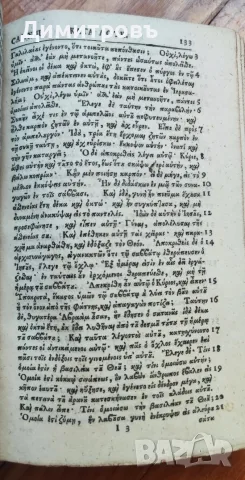 Димитров
133
Γαλιλαίους ἐγένοντο, ὅτι τοιαῦτα πεπόνθασιν; Οὐχὶ, λέγω 3
ὑμῖν· ἀλλ' ἐὰν μὴ μετανοῆτε, πάντες ὡσαύτως ἀπολεῖσθε.
δέκα καὶ ὀκτὼ, ἐφ' οὓς ἔπεσεν ὁ πύργος ἐν τῷ
Σιλωὰμ, καὶ ἀπέκτεινεν αὐτοὺς, δοκεῖτε ὅτι οὗτοι ὀφειλέται
Οὐχὶ, λέγω 5
ὑμῖν· ἀλλ' ἐὰν μὴ μετανοῆτε, πάντες
Ἔλεγε δὲ ταύτην τὴν παραβολήν·
καὶ οὐχ εὗρεν. Εἶπε δὲ πρὸς 7
τὸν ἀμπελουργόν· Ἰδοὺ, τρία ἔτη ἔρχομαι ζητῶν καρπὸν ἐν τῇ
συκῇ ταύτῃ, καὶ οὐχ εὑρίσκω· ἔκκοψον αὐτήν· ἱνατί καὶ
τὴν γῆν καταργεῖ; Ὁ δὲ ἀποκριθεὶς λέγει αὐτῷ· Κύριε, 8
ἄφες αὐτὴν καὶ τοῦτο τὸ ἔτος, ἕως ὅτου σκάψω περὶ αὐτὴν, καὶ
βάλω κοπρίαν. Κἂν μὲν ποιήσῃ καρπόν· εἰ δὲ μήγε, εἰς τὸ 9
μέλλον ἐκκόψεις αὐτήν. Ἦν δὲ διδάσκων ἐν μιᾷ τῶν συνα- 10
γωγῶν ἐν τοῖς σάββασι. Καὶ ἰδοὺ, γυνὴ ἦν πνεῦμα ἔχουσα 11
ἀσθενείας ἔτη δέκα καὶ ὀκτὼ, καὶ ἦν συγκύπτουσα, καὶ μὴ
δυναμένη ἀνακύψαι εἰς τὸ παντελές. Ἰδὼν δὲ αὐτὴν ὁ Ἰησοῦς, 12
προσεφώνησε, καὶ εἶπεν αὐτῇ· Γύναι, ἀπολέλυσαι τῆς
ἀσθενείας σου. Καὶ ἐπέθηκεν αὐτῇ τὰς χεῖρας· καὶ παρα- 13
χρῆμα ἀνωρθώθη, καὶ ἐδόξαζε τὸν Θεόν. Ἀποκριθεὶς δὲ ὁ 14
ἀρχισυνάγωγος, ἀγανακτῶν ὅτι τῷ σαββάτῳ ἐθεράπευσεν ὁ
Ἰησοῦς, ἔλεγε τῷ ὄχλῳ· Ἓξ ἡμέραι εἰσὶν ἐν αἷς δεῖ ἐργάζε-
σθαι· ἐν ταύταις οὖν ἐρχόμενοι θεραπεύεσθε, καὶ μὴ τῇ
ἡμέρᾳ τοῦ σαββάτου. Ἀπεκρίθη οὖν αὐτῷ ὁ Κύριος, καὶ εἶπεν· 15
Ὑποκριτὰ, ἕκαστος ὑμῶν τῷ σαββάτῳ οὐ λύει τὸν βοῦν αὐτοῦ
ἢ τὸν ὄνον ἀπὸ τῆς φάτνης, καὶ ἀπαγαγὼν ποτίζει; Ταύτην 16
δὲ, θυγατέρα Ἀβραὰμ οὖσαν, ἣν ἔδησεν ὁ Σατανᾶς, ἰδοὺ, δέκα
καὶ ὀκτὼ ἔτη, οὐκ ἔδει λυθῆναι ἀπὸ τοῦ δεσμοῦ τούτου τῇ ἡμέρᾳ
τοῦ σαββάτου; Καὶ ταῦτα λέγοντος αὐτοῦ, κατῃσχύνοντο 17
πάντες οἱ ἀντικείμενοι αὐτῷ· καὶ πᾶς ὁ ὄχλος ἔχαιρεν ἐπὶ
πᾶσι τοῖς ἐνδόξοις τοῖς γινομένοις ὑπ' αὐτοῦ. Ἔλεγε δέ· Τίνι 18
ὁμοία ἐστὶν ἡ βασιλεία τοῦ Θεοῦ; καὶ τίνι ὁμοιώσω αὐτήν;
Ὁμοία ἐστὶ κόκκῳ σινάπεως, ὃν λαβὼν ἄνθρωπος ἔβαλεν εἰς 19
κῆπον ἑαυτοῦ· καὶ ηὔξησε, καὶ ἐγένετο εἰς δένδρον μέγα, καὶ
τὰ πετεινὰ τοῦ οὐρανοῦ κατεσκήνωσεν ἐν τοῖς κλάδοις αὐτοῦ.
Καὶ πάλιν εἶπε· Τίνι ὁμοιώσω τὴν βασιλείαν τοῦ Θεοῦ; 20
Ὁμοία ἐστὶ ζύμῃ, ἣν λαβοῦσα γυνὴ ἐνέκρυψεν εἰς ἀλεύρου 21
I 3
σάτα
bazar